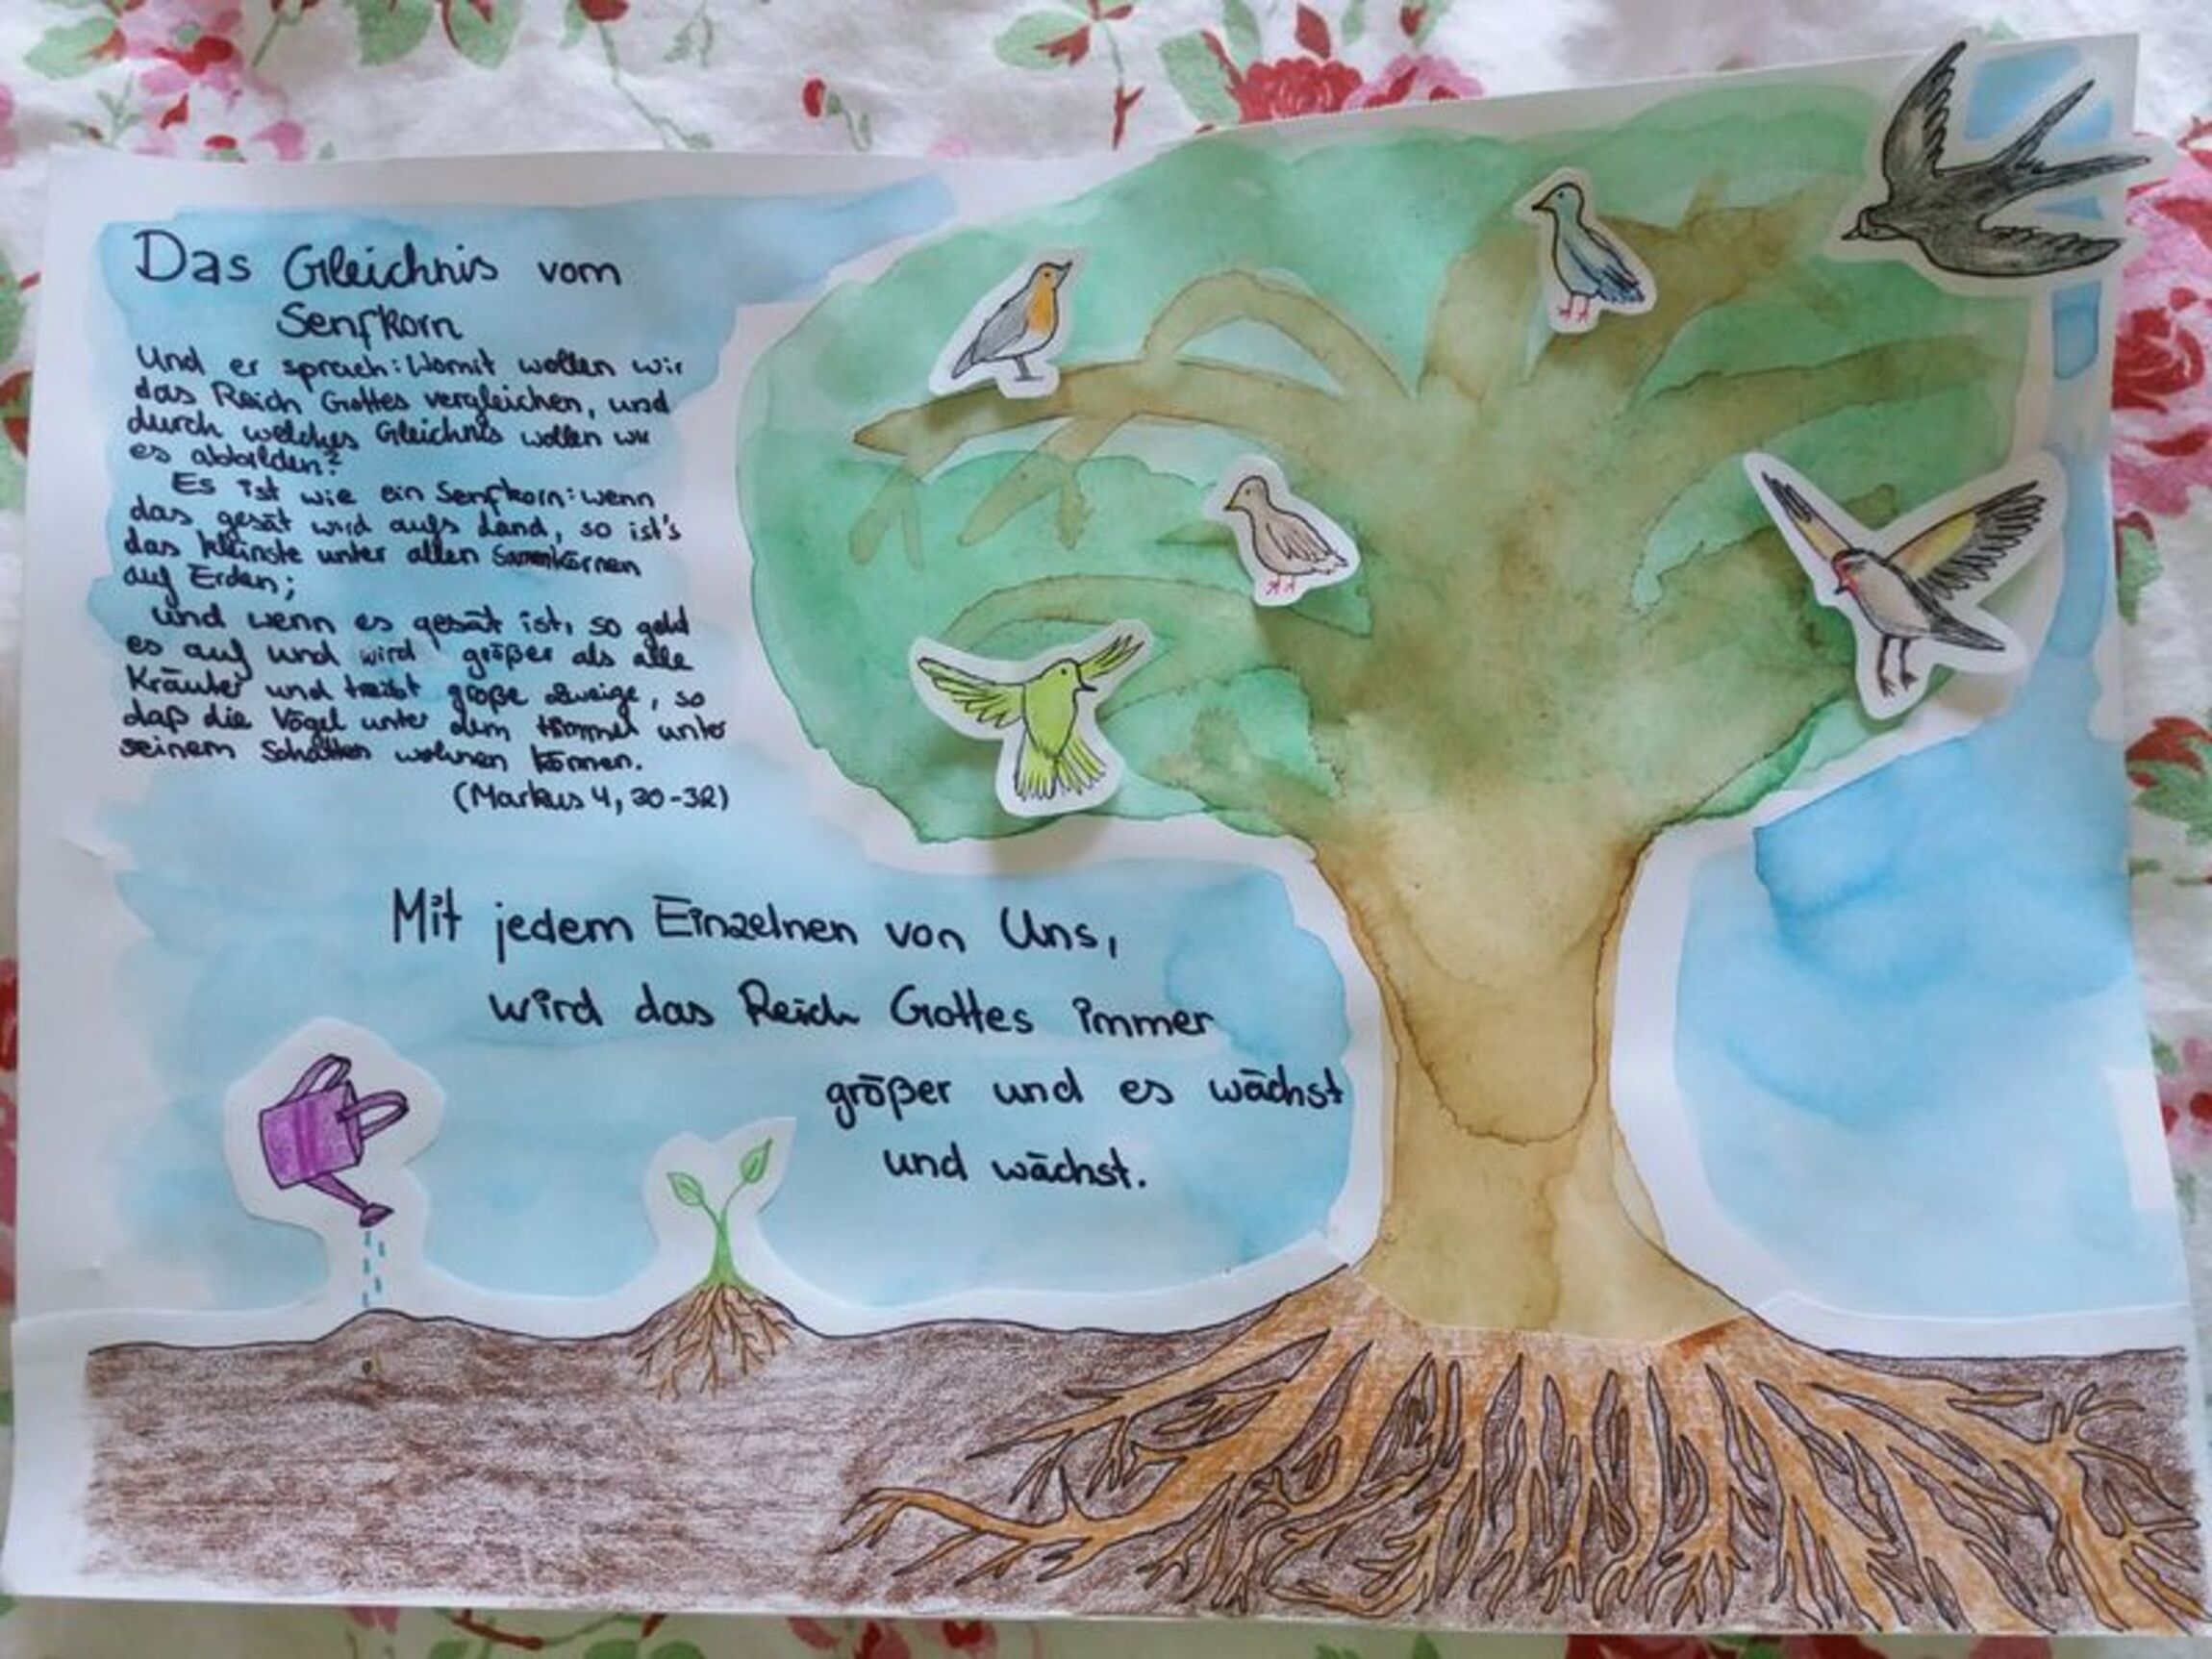 Das Gleichnis vom
Senfkorn
Und er sprach: Womit wollen wir
das Reich Gottes vergleichen, und
durch welches Gleichnis wollen wir
es abbilden?
Es ist wie ein Senfkorn: wenn
das gesät wird aufs Land, so ist's
das kleinste unter allen Samenkörnen
auf Erden;
und wenn es gesät ist, so geht
es auf und wird größer als alle
Kräuter und treibt große Zweige, so
daß die Vögel unter dem Himmel unter
seinem Schatten wohnen können.
(Markus 4, 30-32)
Mit jedem Einzelnen von Uns,
wird das Reich Gottes immer
größer und es wächst
und wächst.